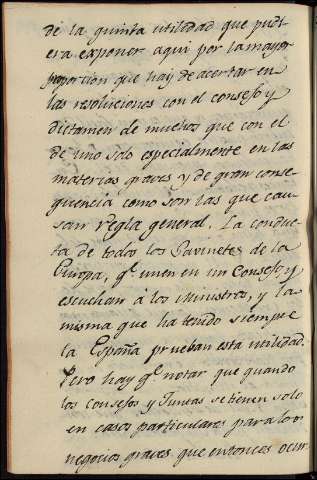 de la quinta utilidad que pudi
era exponer aqui por la mayor
proporcion que hay de acertar en
las resoluciones con el consejo y
dictamen de muchos que con el
de uno solo especialmente en las
materias graves y de gran conse
quencia como son las que cau
san regla general. La conduc
ta de todos los Gavinetes de la
Europa, qe. unen en un Consejo y
escuchan á los ministros, y la
misma que ha tenido siempre
la España prueban esta utilidad.
Pero hay qe. notar que quando
los Consejos y Juntas se tienen solo
en casos particulares para los
negocios graves que entonces ocur